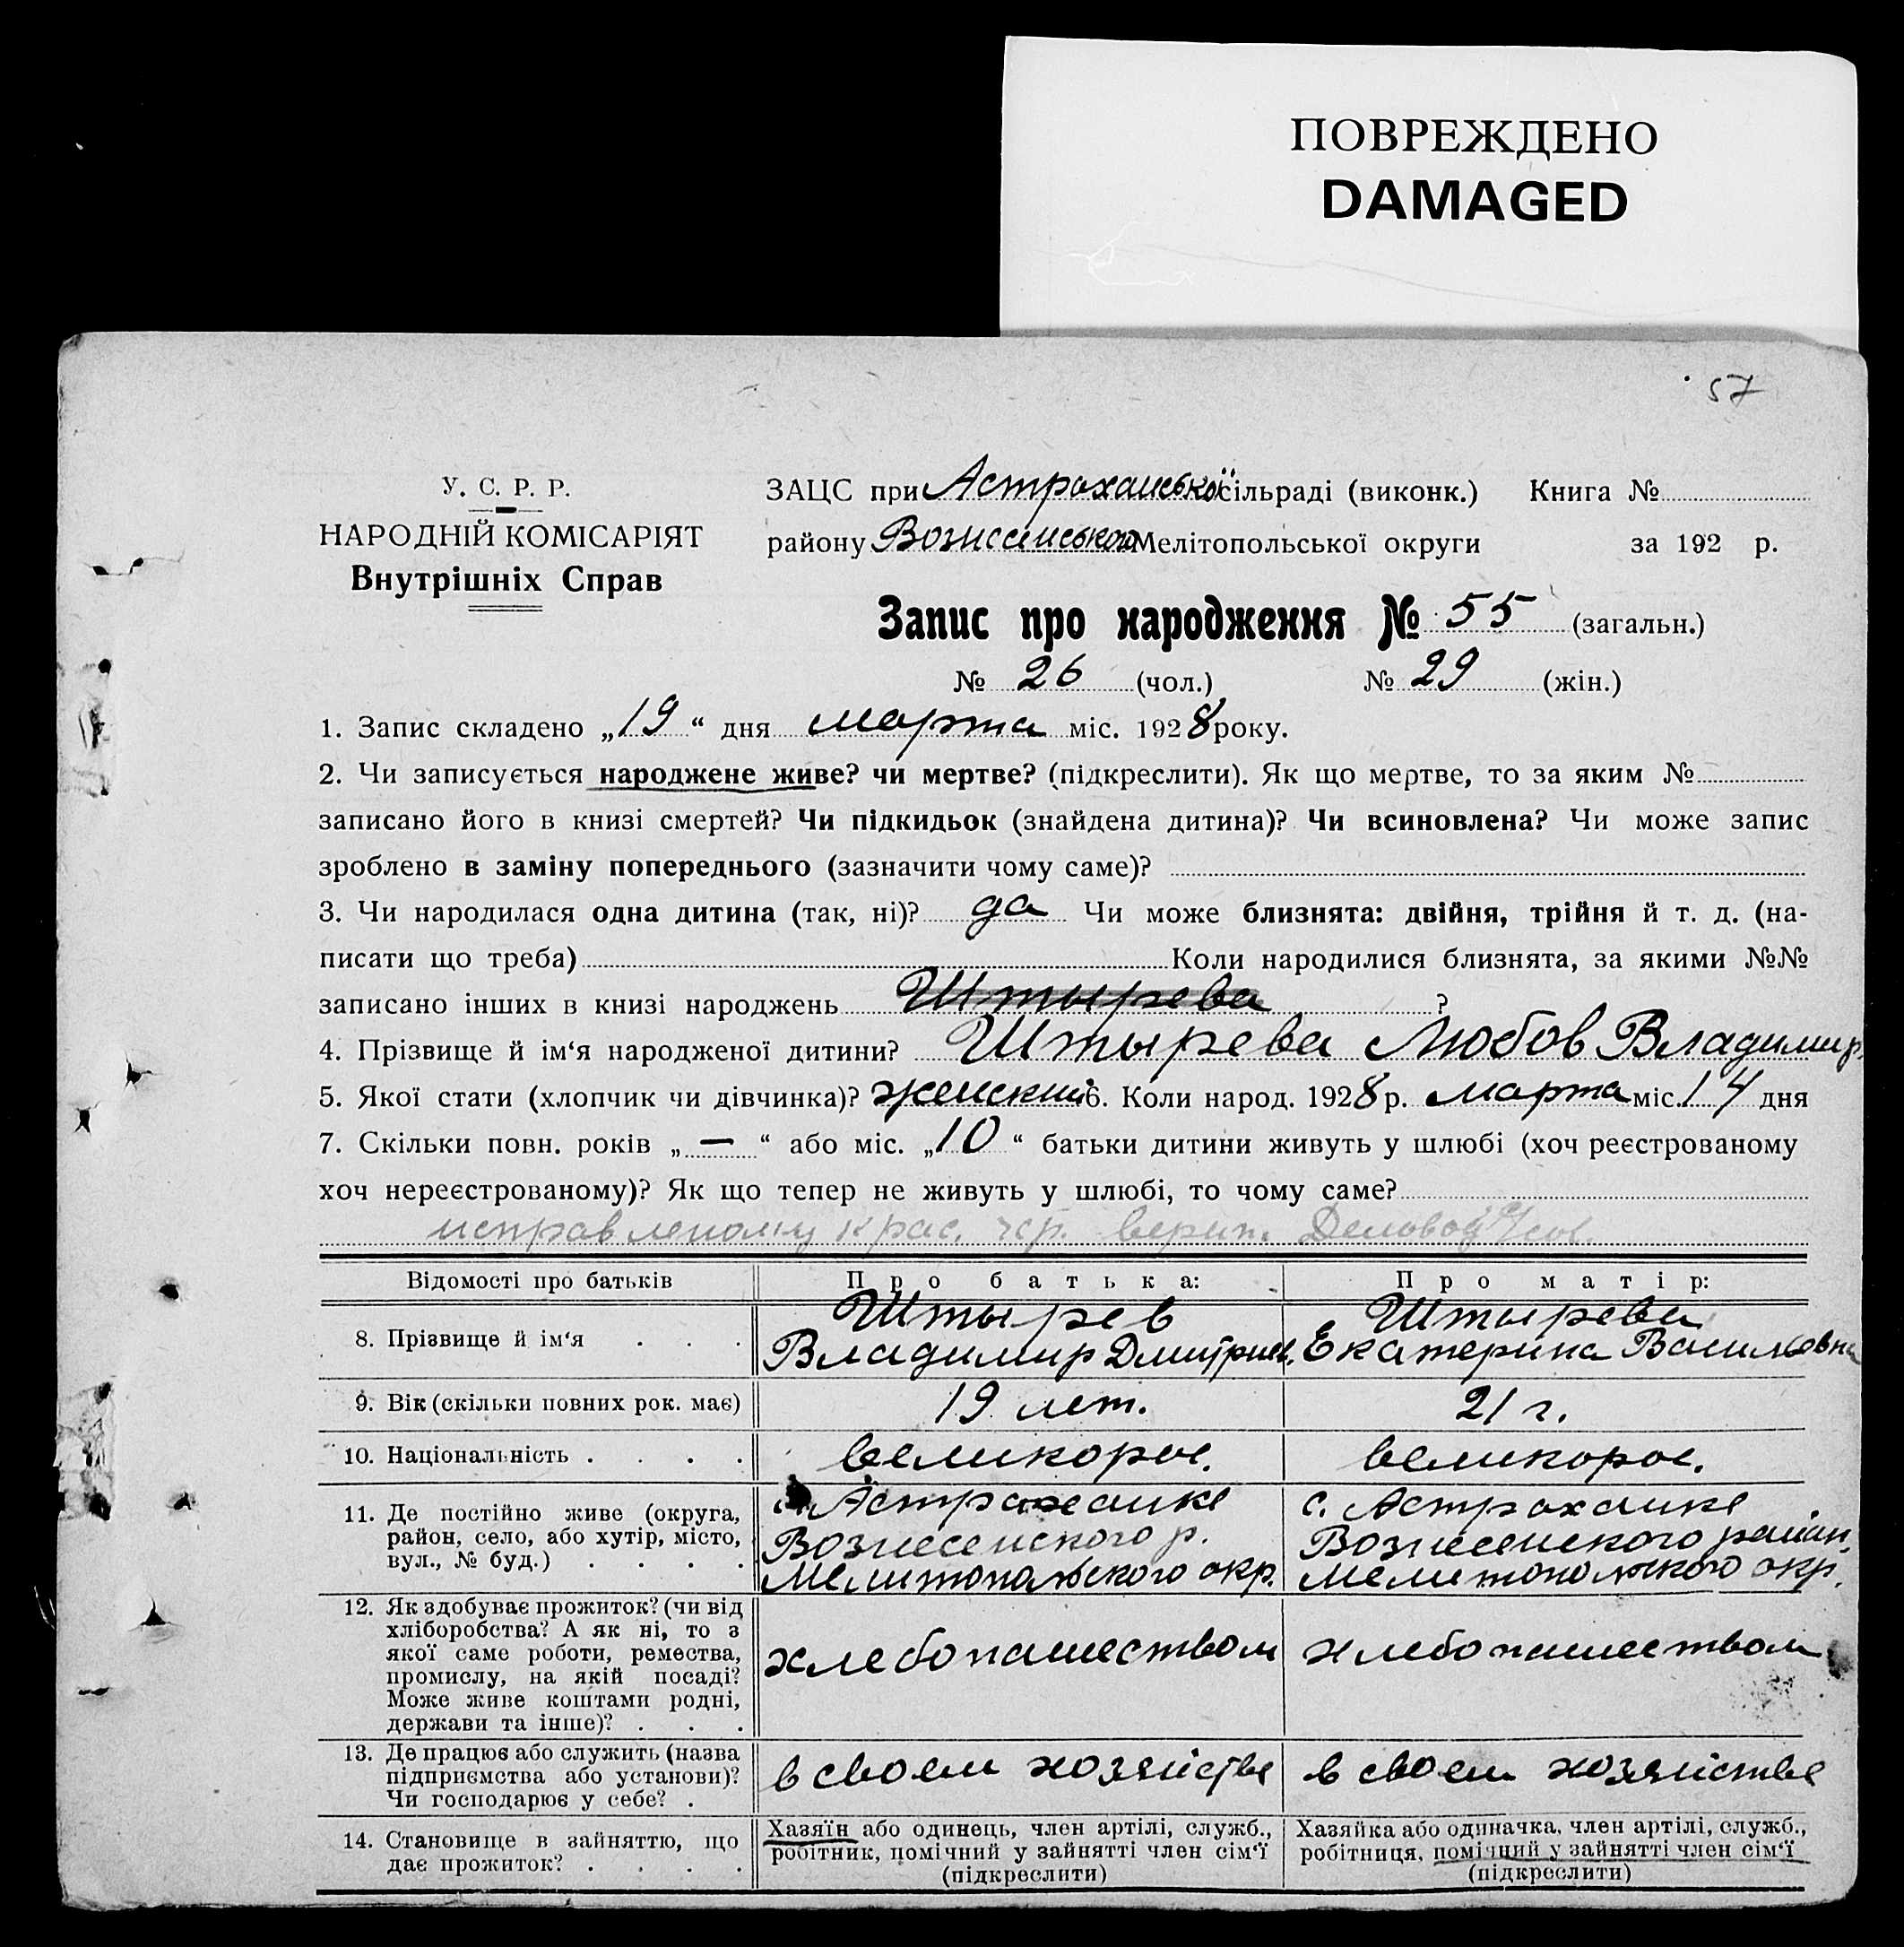 ПОВРЕЖДЕНО
DAMAGED
57
У. С. Р. Р.
НАРОДНІЙ КОМІСАРІЯТ
Внутрішніх Справ
ЗАЦС при Астроханської сільраді (виконк.) Книга №
району Вознесенського Мелітопольської округи за 192 р.
Запис про народження № 55 (загальн.)
№ 26 (чол.) № 29 (жін.)
1. Запис складено „19“ дня марта міс. 1928 року.
2. Чи записується народжене живе? чи мертве? (підкреслити). Як що мертве, то за яким №
записано його в книзі смертей? Чи підкидьок (знайдена дитина)? Чи всиновлена? Чи може запис
зроблено в заміну попереднього (зазначити чому саме)?
3. Чи народилася одна дитина (так, ні)? да Чи може близнята: двійня, трійня й т. д. (на-
писати що треба) Коли народилися близнята, за якими №№
записано інших в книзі народжень Штырева ?
4. Прізвище й ім‘я народженої дитини? Штырева Любов Владимир
5. Якої стати (хлопчик чи дівчинка)? женский 6. Коли народ. 1928 р. марта міс. 14 дня
7. Скільки повн. років „ — “ або міс. „10“ батьки дитини живуть у шлюбі (хоч реєстрованому
хоч нереєстрованому)? Як що тепер не живуть у шлюбі, то чому саме?
крас. чер. верит. Деловод
Відомості про батьків Про батька: Про матір:
8. Прізвище й ім‘я . . . Штырев Владимир Дмитриев. Штырева Екатерина Васильевна
9. Вік (скільки повних рок. має) 19 лет. 21 г.
10. Національність . . . . великорос. великорос.
11. Де постійно живе (округа,
район, село, або хутір, місто,
вул., № буд.) . . . .
с. Астраханке
Вознесенского р.
Мелитопольского окр.
с. Астроханке
Вознесенского район.
Мелитопольского окр.
12. Як здобуває прожиток? (чи від
хліборобства? А як ні, то з
якої саме роботи, ремества,
промислу, на якій посаді?
Може живе коштами родні,
держави та інше)? . . .
хлебопашеством хлебопашеством
13. Де працює або служить (назва
підприємства або установи)?
Чи господарює у себе? .
в своем хозяйстве в своем хозяйстве
14. Становище в зайняттю, що
дає прожиток? . . . .
Хазяїн або одинець, член артілі, служб.,
робітник, помічний у зайнятті член сім‘ї
(підкреслити)
Хазяйка або одиначка, член артілі, служб.,
робітниця, помічний у зайнятті член сім‘ї
(підкреслити)